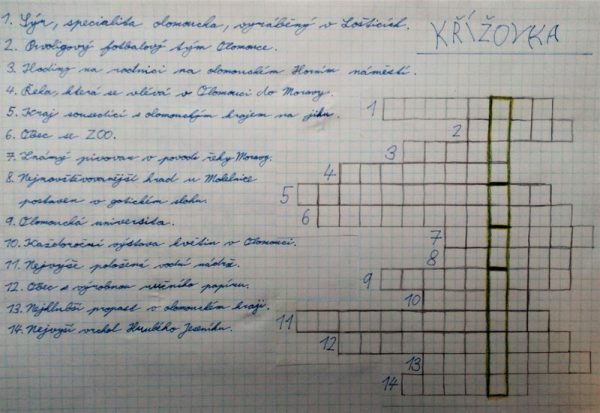 KŘÍŽOVKA
1. Sýr, specialita olomoucka, vyráběný v Lošticích.
2. Prvoligový fotbalový tým Olomouce.
3. Hodiny na radnici na olomouckém Horním náměstí.
4. Řeka, která se vlévá v Olomouci do Moravy.
5. Kraj sousedící s olomouckým krajem na jihu.
6. Obec se ZOO.
7. Známý pivovar v povodí řeky Moravy.
8. Nejnavštěvovanější hrad u Mohelnice
postaven v gotickém slohu.
9. Olomoucká univerzita.
10. Každoroční výstava květin v Olomouci.
11. Nejvýše položená vodní nádrž.
12. Obec s výrobnou ručního papíru.
13. Nejhlubší propast v olomouckém kraji.
14. Nejvyšší vrchol Hrubého Jeseníku.
1
2
3
4
5
6
7
8
9
10
11
12
13
14